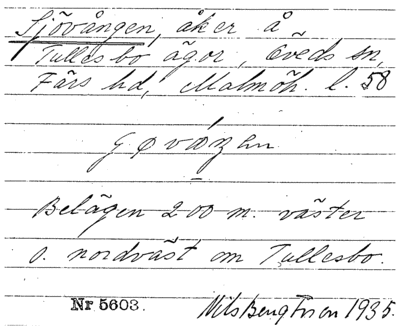 Sjövången, åker å
Tullesbo ägor, Öveds sn,
Färs hd, Malmöh. l. 58
Belägen 200 m. väster
o. nordväst om Tullesbo.
Nr 5603. Nils Bengtsson 1935.